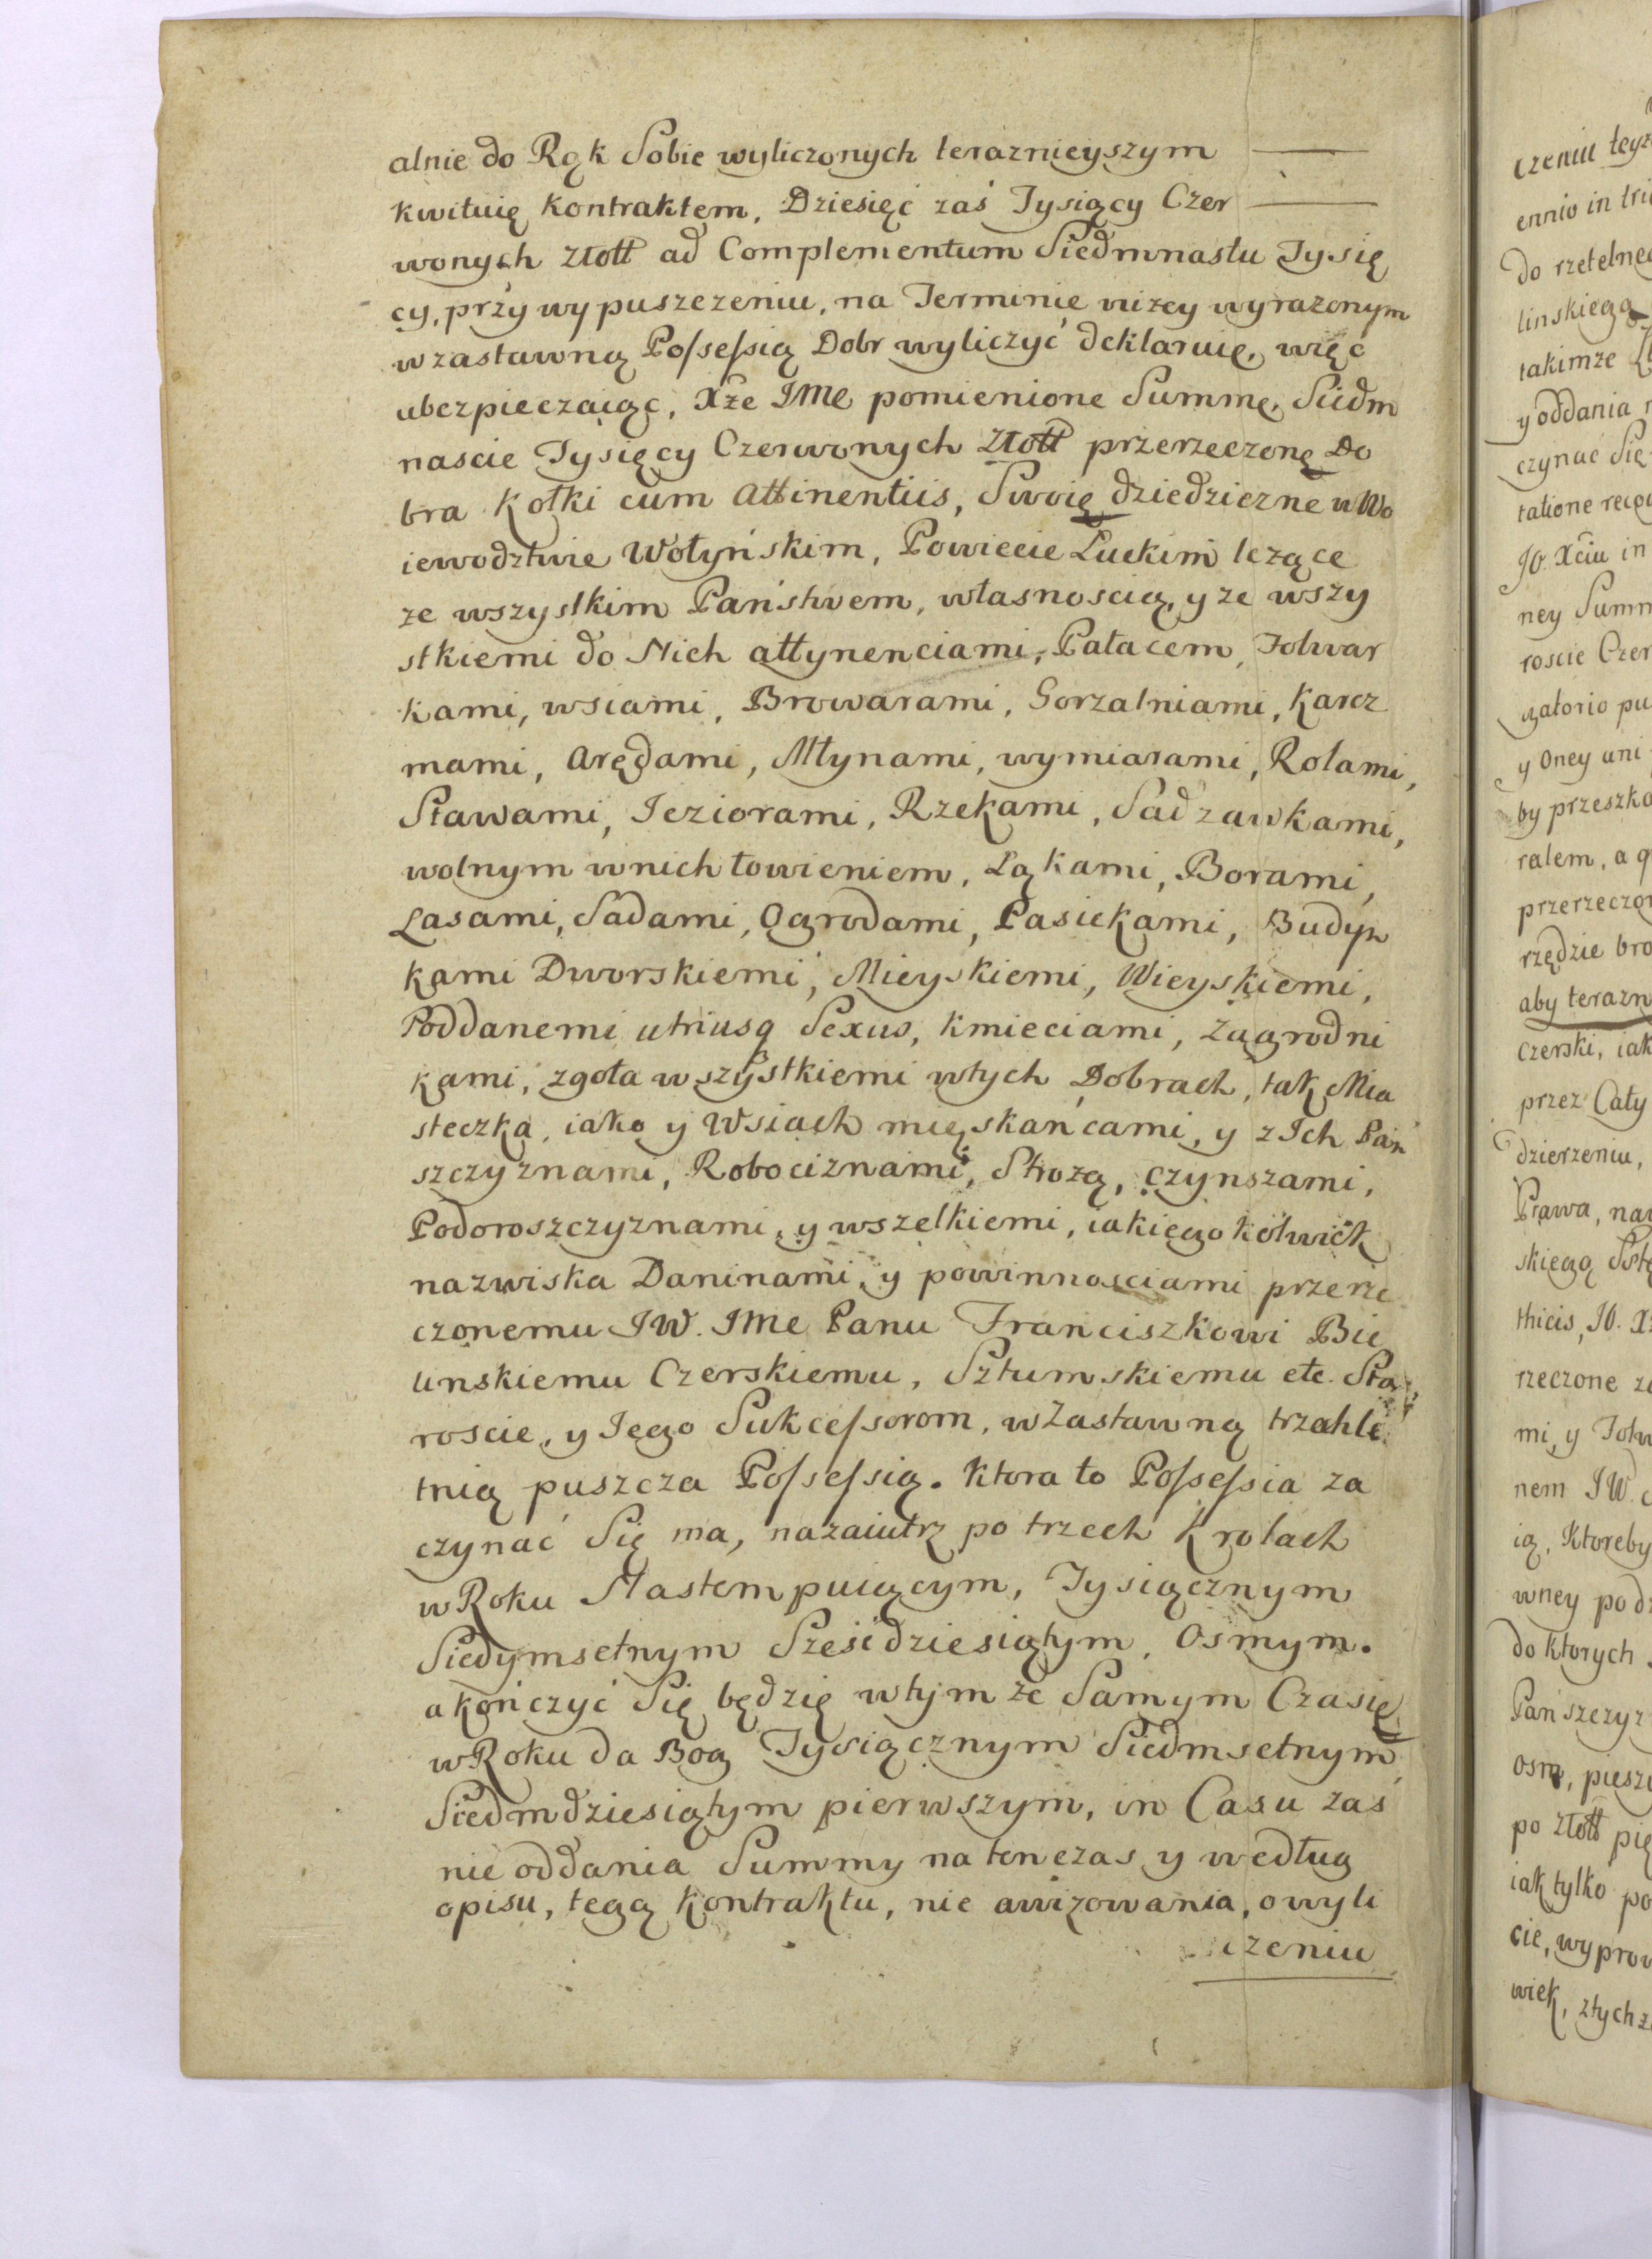 alnie do Rąk Sobie wyliczonych teraznieyszym
kwituię kontraktem, Dziesięć zaś Tysięcy Czer
wonych Złott ad Complementum Siedmnastu Tysię
cy, przy wypuszczeniu, na Terminie niżey wyrażonym
w zastawną Possessią Dobr wyliczyć deklaruię, więc
ubezpieczaiąc, Xże JMC pomienione Summę, Siedm
nascie Tysięcy Czerwonych Złott przerzeczone Do
bra Kołki cum Attinentiis, Swoię dziedziczne w Wo
iewodztwie Wołyńskim, Powiecie Łuckim leżące
ze wszystkim Państwem, własnoscią, y ze wszy
stkiemi do Nich attynenciami, Pałacem, Folwar
kami, wsiami, Browarami, Gorzalniami, Karcz
mami, Arędami, Młynami, wymiarami, Rolami,
Stawami, Jeziorami, Rzekami, Sadzawkami,
wolnym w nich łowieniem, Łąkami, Borami,
Lasami, Sadami, Ogrodami, Pasiekami, Budyn
kami Dworskiemi, Mieyskiemi, Wieyskiemi,
Poddanemi utriusq Sexus, kmieciami, Zagrodni
kami, zgoła wszystkiemi w tych Dobrach, tak Mia
steczka, iako y Wsiach mięskańcami, y z Ich Pań
szczyznami, Robociznami, Strożą, Czynszami,
Podoroszczyznami, y wszelkiemi, iakiego kolwiek
nazwiska Daninami, y powinnosciami przerze
czonemu JW. JMC Panu Franciszkowi Bie
linskiemu Czerskiemu, Sztumskiemu etc. Sta
roscie, y Jego Sukcessorom, w Zastawną trzechle
tnią puszcza Possessią. Ktora to Possessia za
czynać Się ma, nazaiutrz po trzech Krolach
w Roku Nastempuiącym, Tysiącznym
Siedymsetnym Sześćdziesiątym, Osmym.
a kończyć Się będzię w tym ze Samym Czasię
w Roku da Bog Tysiącznym Siedmsetnym
Siedmdziesiątym pierwszym, in Casu zas
nie oddania Summy na tenczas y według
opisu, tego kontraktu, nie awizowania, o wyli
czeniu

czeniu teyz
ennio in tri
do rzetelneg
linskiego
takimze
y oddania
czynac Się
tatione reco
JO. Xciu in
ney Summ
roscie Czer
gatorio pu
y Oney ani
by przeszko
ralem, a q
przerzeczon
rzędzie bro
aby terazn
Czerski, iak
przez Cały
dzierzeniu,
Prawa, nay
skiego Sta
thicis, JO. X
rzeczone za
mi, y Folw
nem JW.
ią, Ktoreby
wney podz
do ktorych
Pańszczyz
osm, pieszy
po Złott pię
iak tylko po
cie, wyprow
wiek, z tych z